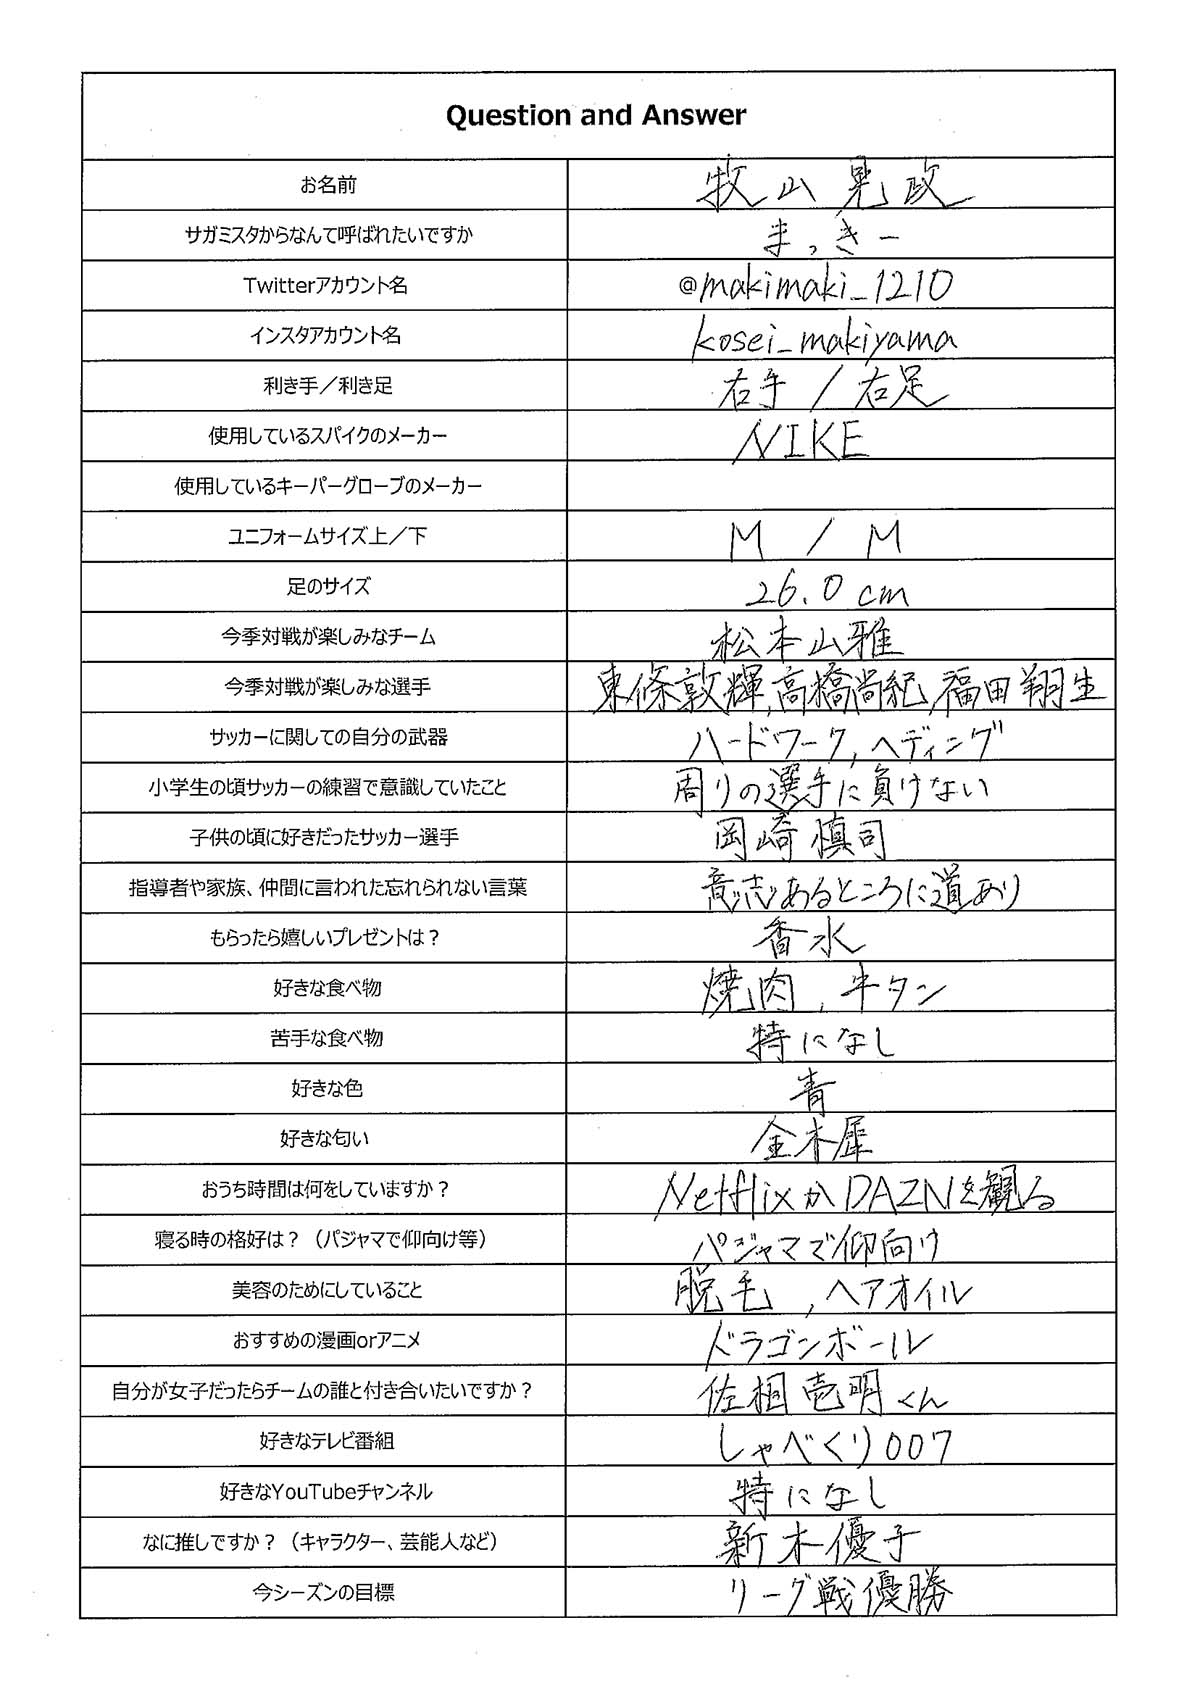 Question and Answer
お名前 牧山晃政
サガミスタからなんて呼ばれたいですか まっきー
Twitterアカウント名 @makimaki_1210
インスタアカウント名 kosei_makiyama
利き手／利き足 右手 / 右足
使用しているスパイクのメーカー NIKE
使用しているキーパーグローブのメーカー
ユニフォームサイズ上／下 M / M
足のサイズ 26.0 cm
今季対戦が楽しみなチーム 松本山雅
今季対戦が楽しみな選手 東條敦輝,高橋尚紀,福田翔生
サッカーに関しての自分の武器 ハードワーク,ヘディング
小学生の頃サッカーの練習で意識していたこと 周りの選手に負けない
子供の頃に好きだったサッカー選手 岡崎慎司
指導者や家族、仲間に言われた忘れられない言葉 意志あるところに道あり
もらったら嬉しいプレゼントは？ 香水
好きな食べ物 焼肉,牛タン
苦手な食べ物 特になし
好きな色 青
好きな匂い 金木犀
おうち時間は何をしていますか？ NetflixかDAZNを観る
寝る時の格好は？（パジャマで仰向け等） パジャマで仰向け
美容のためにしていること 脱毛,ヘアオイル
おすすめの漫画orアニメ ドラゴンボール
自分が女子だったらチームの誰と付き合いたいですか？ 佐相壱明くん
好きなテレビ番組 しゃべくり007
好きなYouTubeチャンネル 特になし
なに推しですか？（キャラクター、芸能人など） 新木優子
今シーズンの目標 リーグ戦優勝